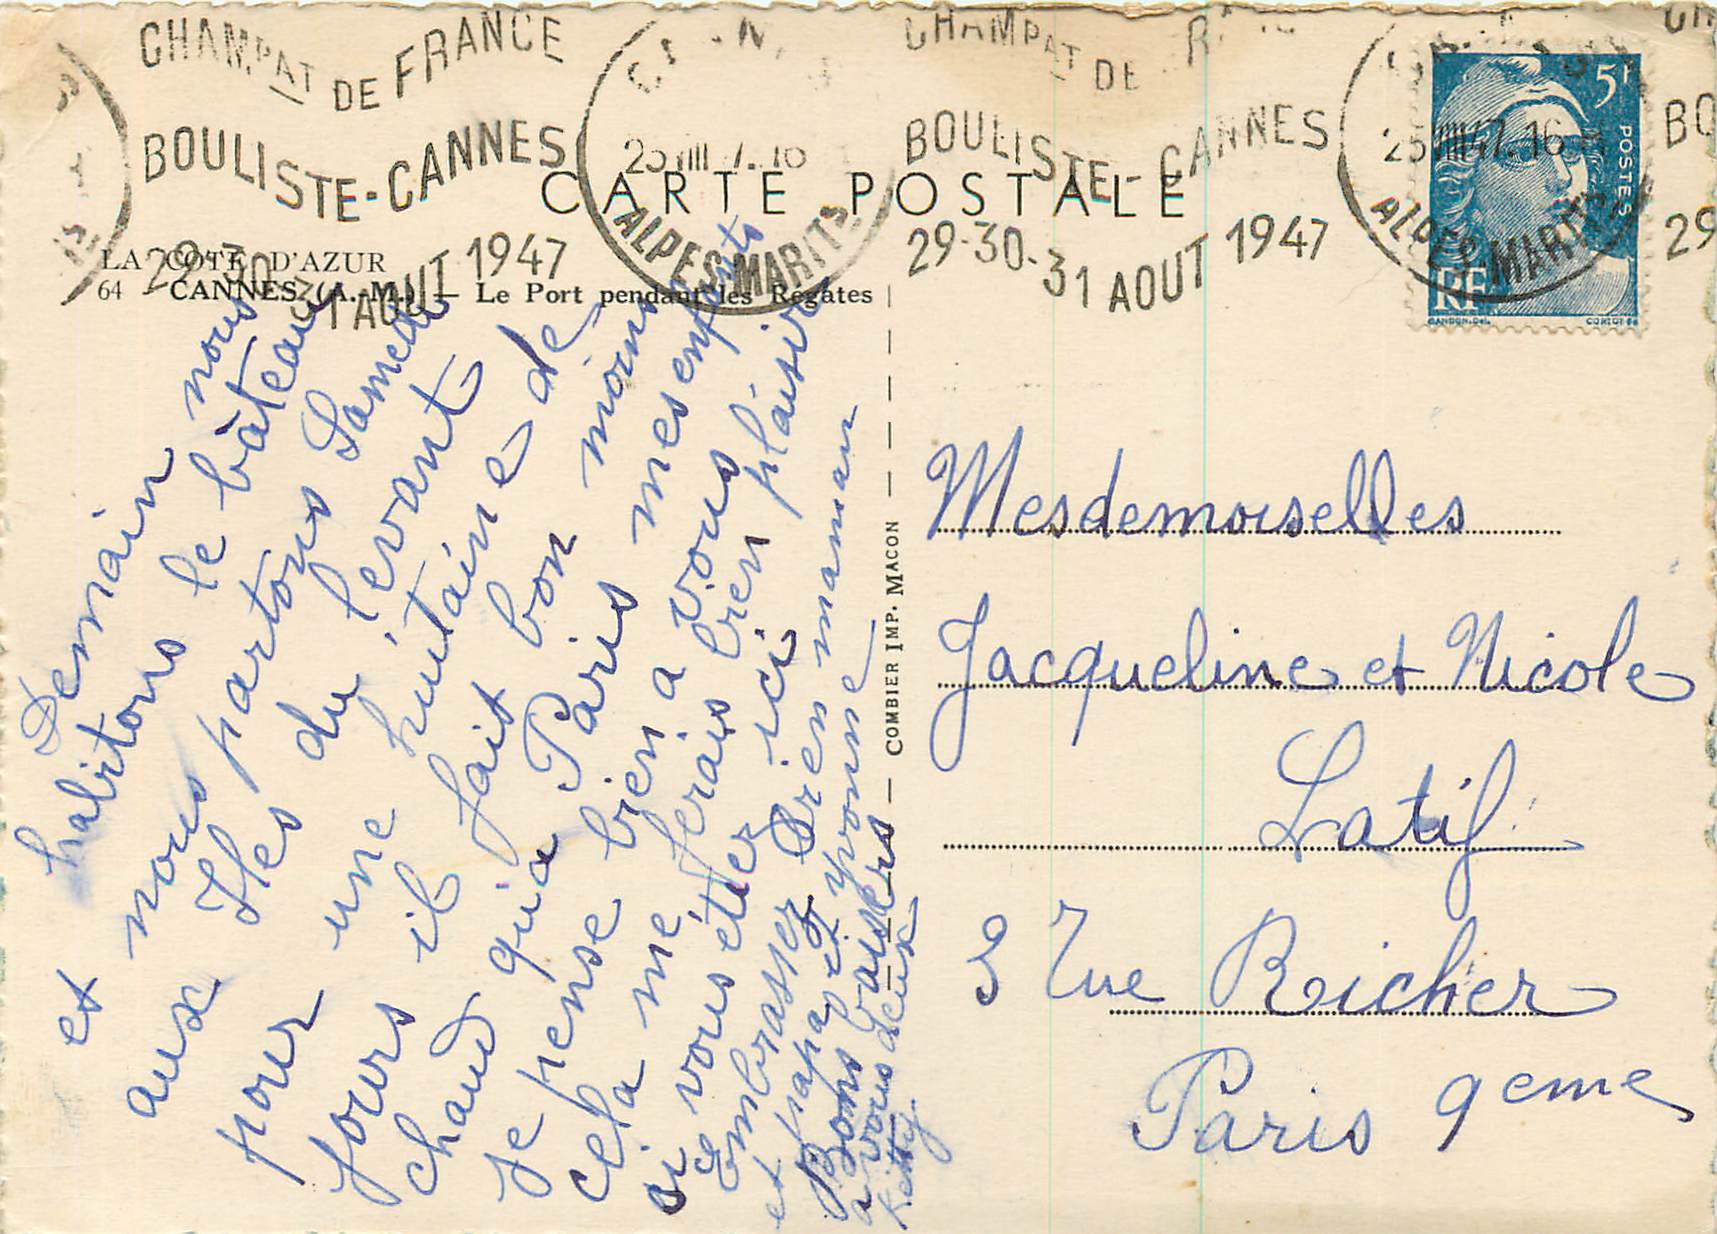 CHAMPAT DE FRANCE
BOULISTE-CANNES
29-30-31 AOUT 1947
25 VIII 16
ALPES MARITS
CHAMPAT DE
BOULISTE-CANNES
29-30-31 AOUT 1947
25 VIII 47. 16
ALPES MARITS
BO
29
5F
POSTES
RF
GANDON. DEL.
CARTE POSTALE
LA COTE D'AZUR
64 CANNES (A.-M.) — Le Port pendant les Régates
COMBIER IMP. MACON
Demain nous
habitons le bâteau
et nous partons Samedi
aux Iles du levant
pour une huitaine de
jours il fait bon moins
chaud qu'a Paris mes enfants
Je pense bien a vous
cela me ferais bien plaisir
si vous étier ici
embrasser bien maman
et papa et yvonne
Bons baisers
a vous deux
Ketty.
Mesdemoiselles
Jacqueline et Nicole
Latif
5 rue Richer
Paris 9eme